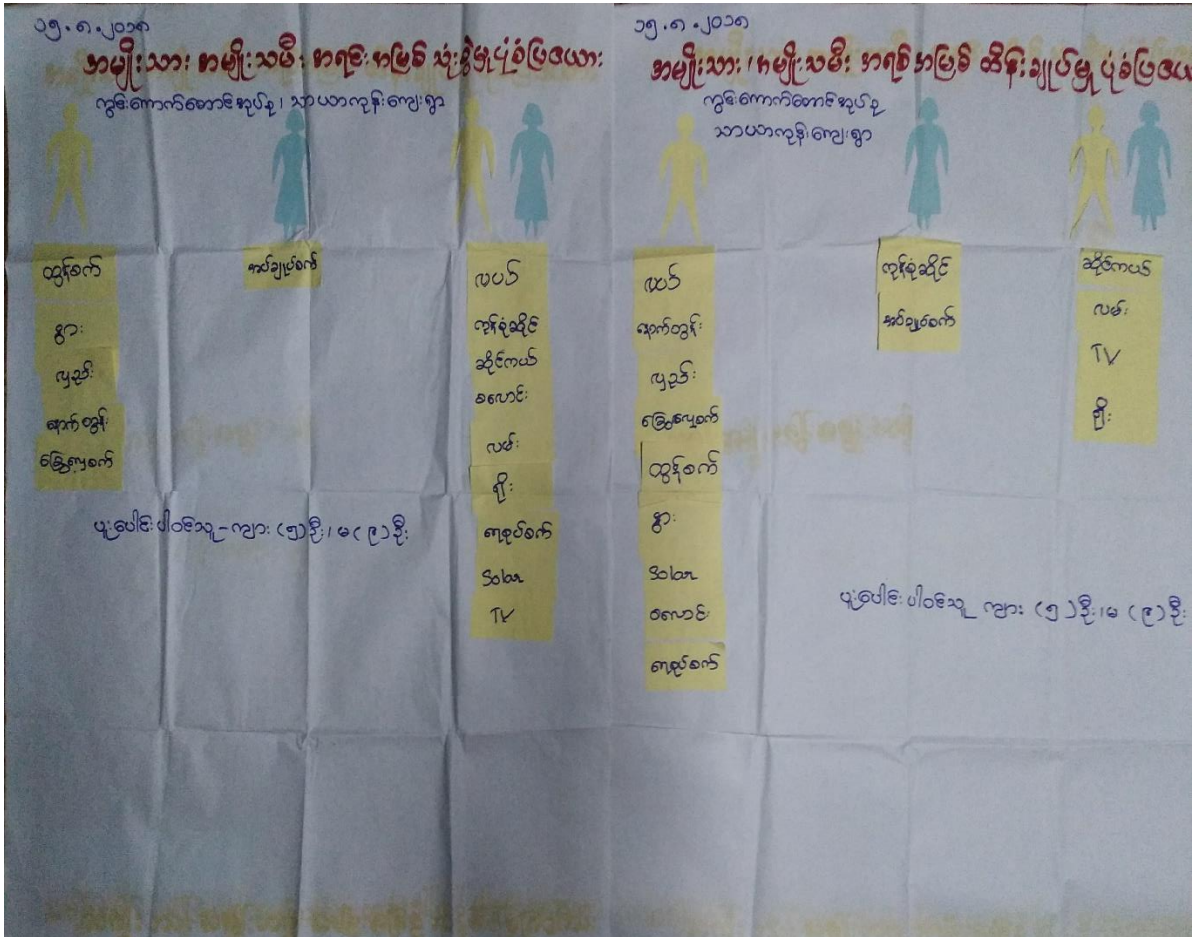 ၁၅.၈.၂၀၁၈
အမျိုးသား အမျိုးသမီး အရင်းအမြစ် သုံးစွဲမှုပုံစံပြဇယား
ကွင်းကောက်တောင်အုပ်စု၊ သာယာကုန်းကျေးရွာ
ထွန်စက်
နွား
လှည်း
နောက်တွန်း
ခြွေလှေ့စက်
အပ်ချုပ်စက်
လယ်
ကုန်စုံဆိုင်
ဆိုင်ကယ်
စလောင်း
လမ်း
ရိုး
ရေစုပ်စက်
Solar
TV
ပူးပေါင်းပါဝင်သူ-ကျား (၅)ဦး၊ မ (၉)ဦး
၁၅.၈.၂၀၁၈
အမျိုးသား၊ အမျိုးသမီး အရင်အမြစ် ထိန်းချုပ်မှု ပုံစံပြဇယ
ကွင်းကောက်တောင်အုပ်စု
သာယာကုန်းကျေးရွာ
လယ်
နောက်တွန်း
လှည်း
ခြွေလှေ့စက်
ထွန်စက်
နွား
Solar
စလောင်း
ရေစုပ်စက်
ကုန်စုံဆိုင်
အပ်ချုပ်စက်
ဆိုင်ကယ်
လမ်း
TV
ရိုး
ပူးပေါင်းပါဝင်သူ ကျား (၅)ဦး၊ မ (၉)ဦး